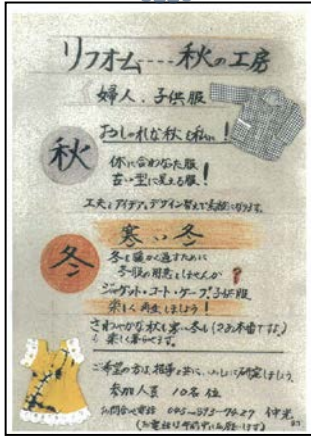 リフォーム----秋の工房
婦人.子供服
秋
おしゃれな秋を私に!
体に合わなった服
古い型に見える服!
工夫とアイデア,デザイン替えで素敵になります.
冬
寒い冬
冬を暖かく過すために
冬服の用意をしませんか?
ジャケット・コート・ケープ.子供服
楽しく再生しましょう!
さわやかな秋も寒い冬も
楽しく暮らせます.
ご希望の方は,指導と共に,いっしょに研究しましょう.
参加人員 10名位
お問合せ電話